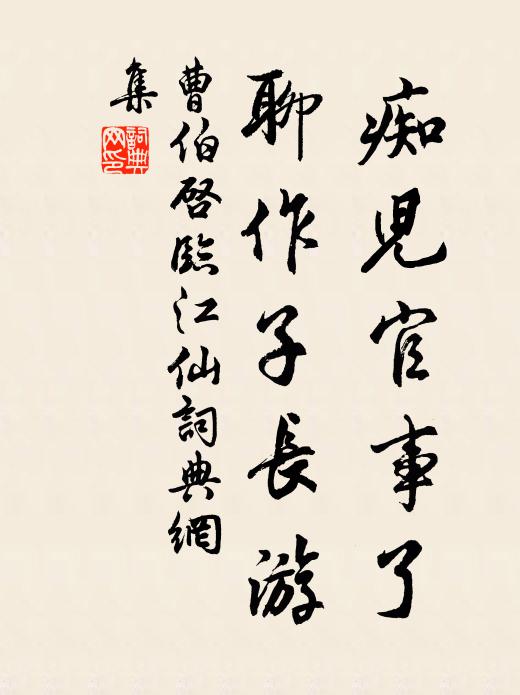 痴児官事了
聊作子長游
曹伯啓臨江仙詞典網
集
詞典
网印